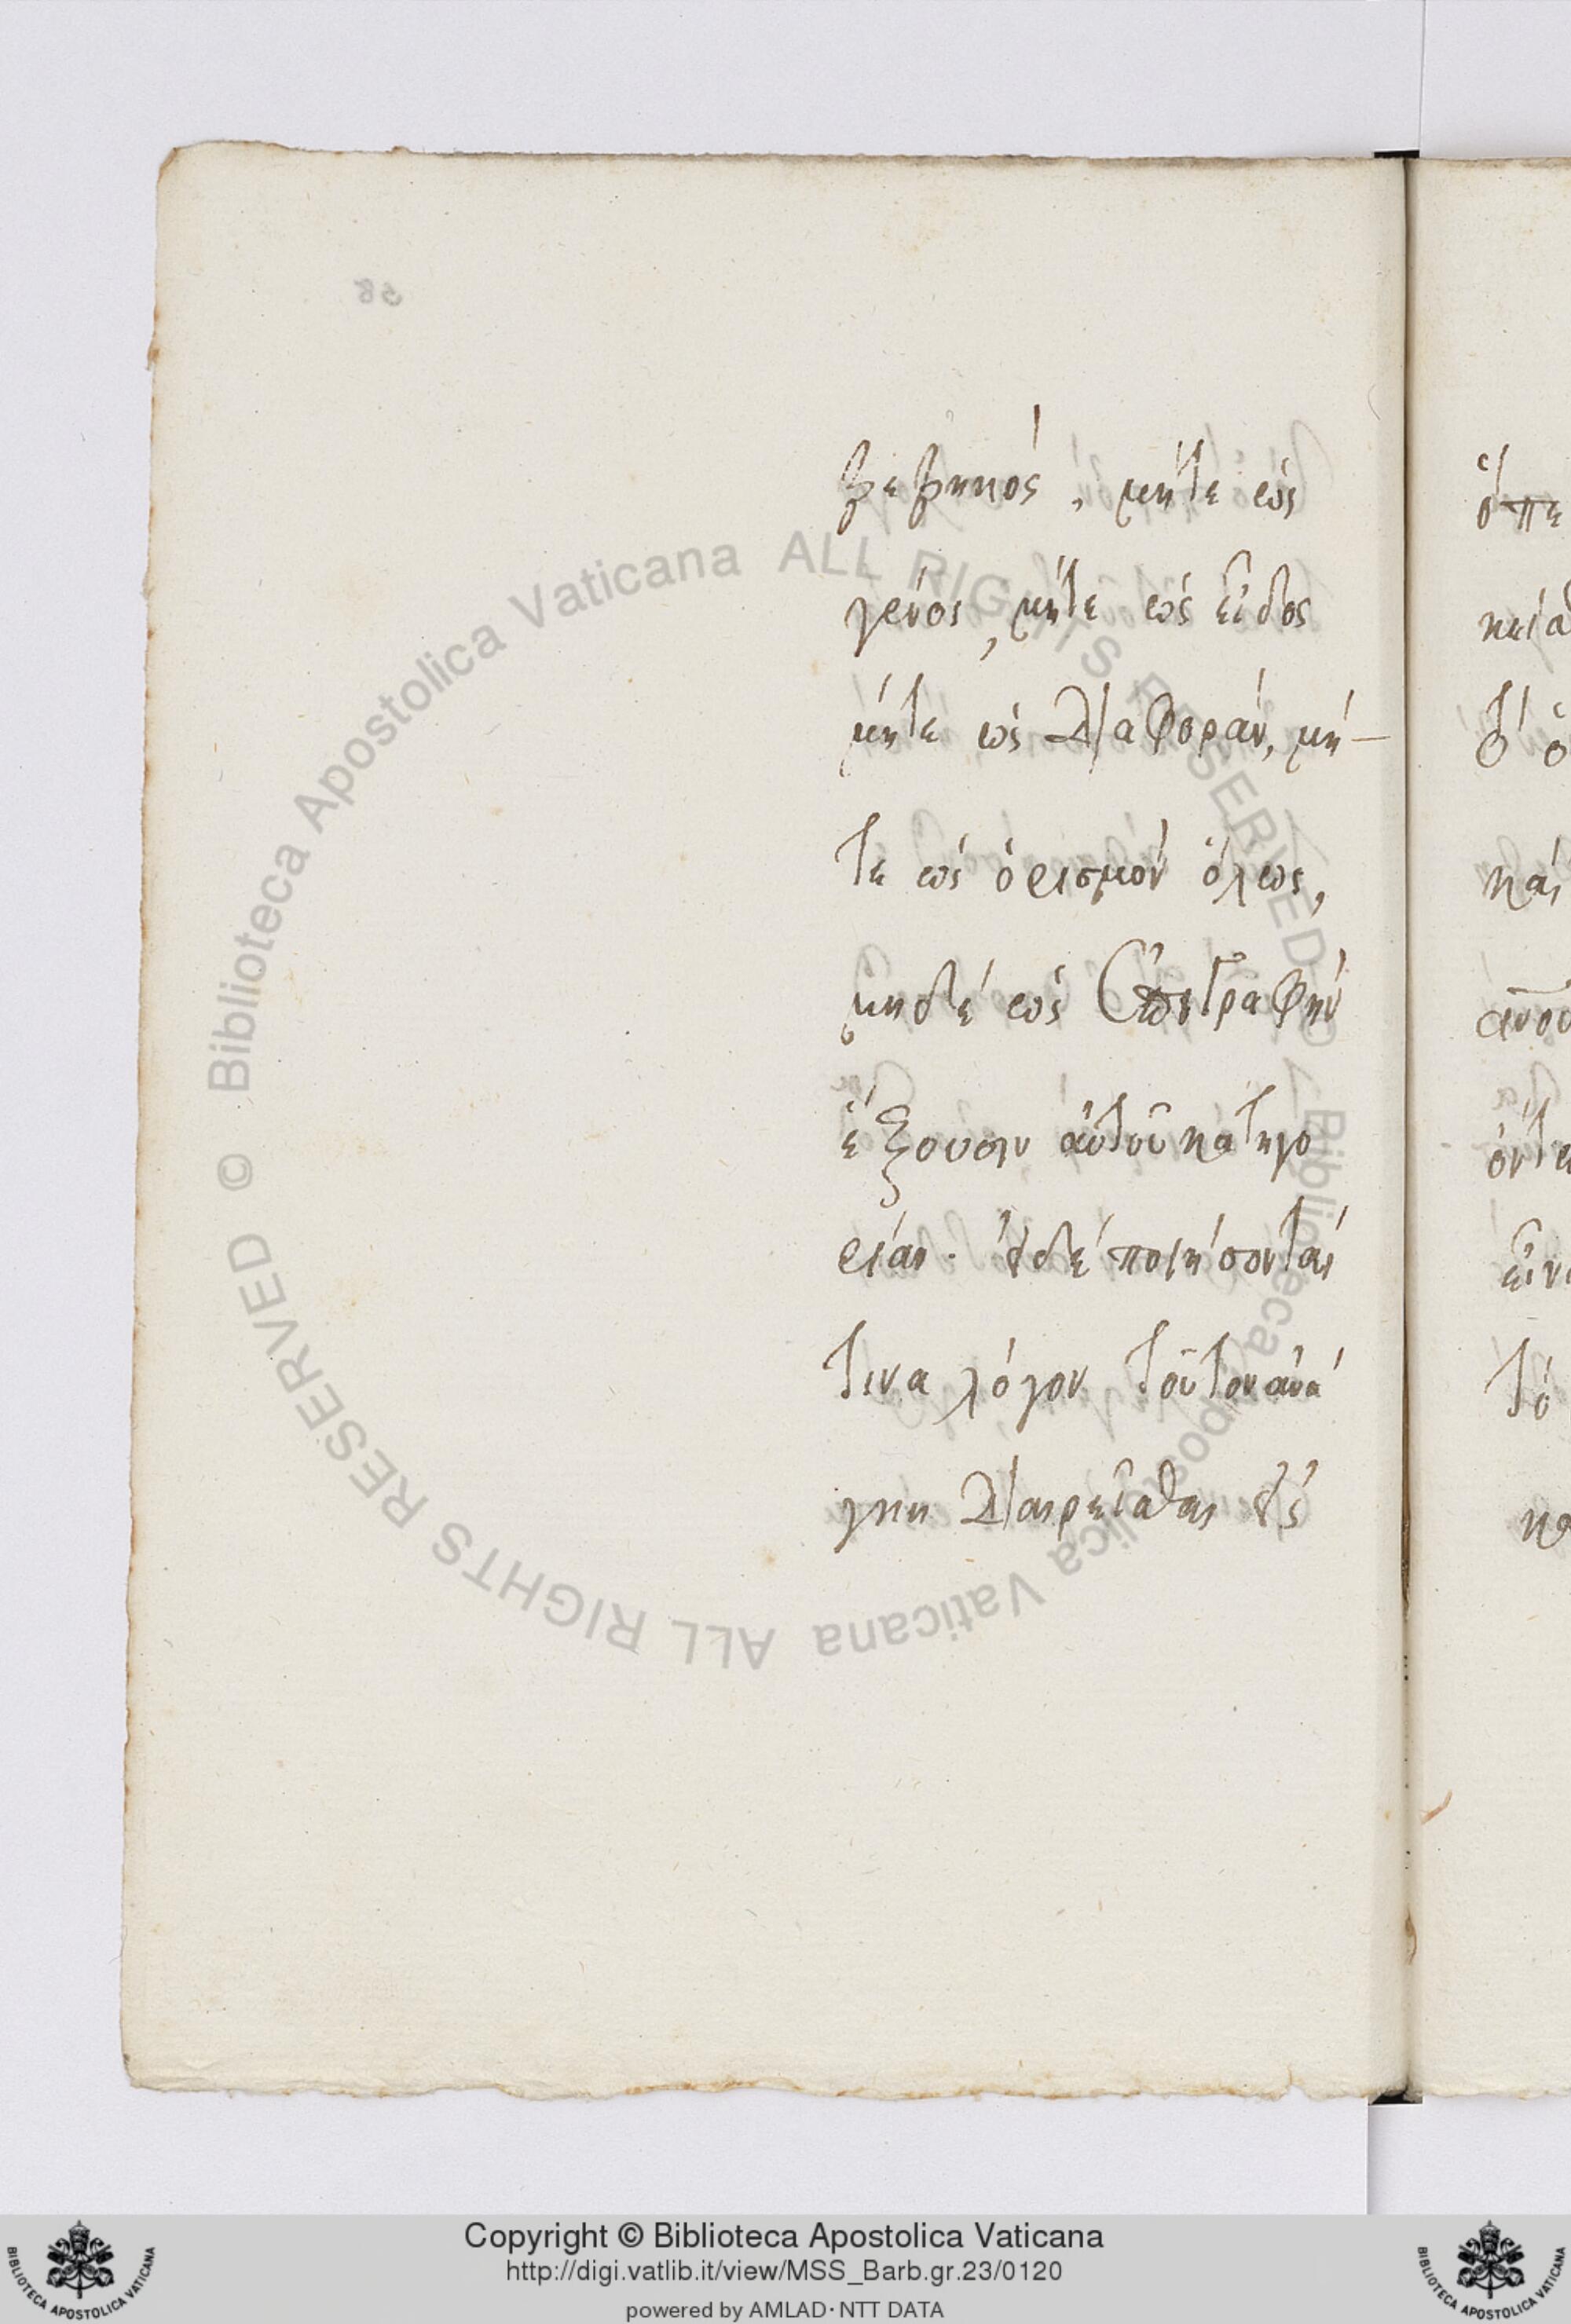 βεβηκός, μήτε ὡς
γένος, μήτε ὡς εἶδος
μήτε ὡς διαφοράν, μή-
τε ὡς ὁρισμόν ὅλως,
μηδέ ὡς
ἕξουσιν αὐτοῦ κατηγο
ρίαν. οὐδέ ποιήσονται
τινα λόγον τοῦτον ἀνά
γκη διαιρεῖσθαι
ὅπε
καί
τό
Biblioteca Apostolica Vaticana ALL RIGHTS RESERVED ©
Biblioteca Apostolica Vaticana ALL RIGHTS RESERVED ©
Copyright © Biblioteca Apostolica Vaticana
http://digi.vatlib.it/view/MSS_Barb.gr.23/0120
powered by AMLAD · NTT DATA
BIBLIOTECA APOSTOLICA VATICANA
BIBLIOTECA APOSTOLICA VATICANA